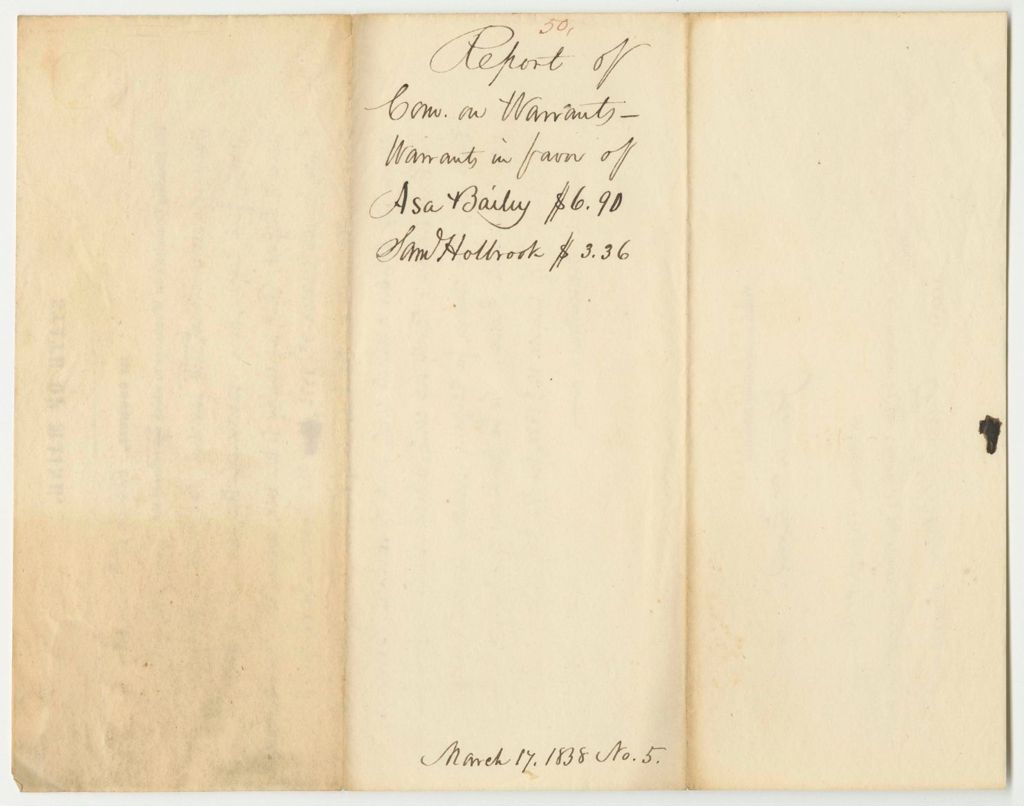 50,
Report of
Com. on Warrants –
Warrants in favor of
Asa Bailey $6.90
Saml Holbrook $ 3.36
March 17. 1838 No. 5.